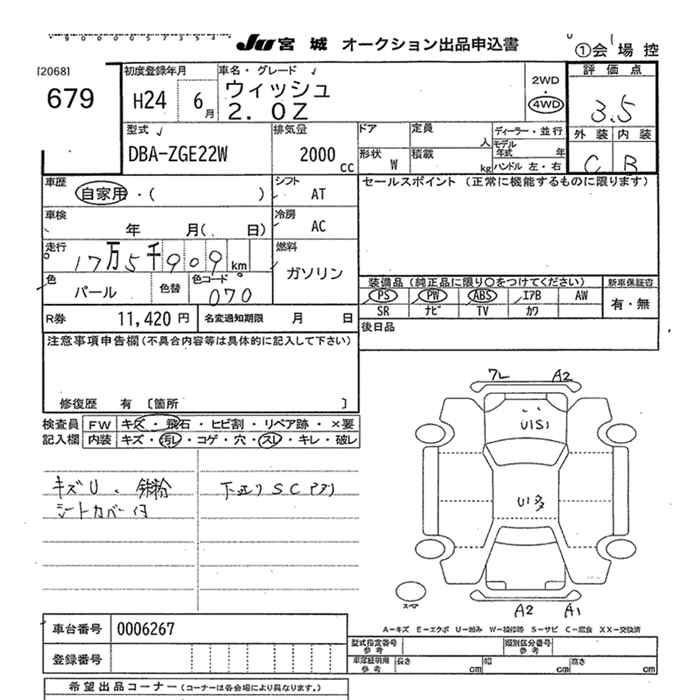 JU 宮城 オークション出品申込書
①会場控
[2068]
679
初度登録年月
H24 6月
車名・グレード
ウィッシュ
2.0Z
2WD
・
4WD
評価点
3.5
外装 内装
C B
型式
DBA-ZGE22W
排気量
2000 cc
ドア
定員 人
形状 W
積載 kg
ディーラー・並行
モデル年式 年
ハンドル 左・右
車歴
自家用・( )
シフト
AT
セールスポイント (正常に機能するものに限ります)
車検
年 月( 日)
冷房
AC
走行
17万5千909km
燃料
ガソリン
色
パール
色替
色コード
070
装備品 (純正品に限り○をつけてください)
新車保証書
PS PW ABS エアB AW
SR ナビ TV カワ
有・無
R券 11,420円
名変通知期限 月 日
後日品
注意事項申告欄(不具合内容等は具体的に記入して下さい)
修復歴 有 〔箇所 〕
検査員
記入欄
FW キズ・飛石・ヒビ割・リペア跡・×要
内装 キズ・汚レ・コゲ・穴・スレ・キレ・破レ
キズU・鉄粉
シートカバー付
下廻りSC
A2
U多
スペア
A2 A1
A-キズ E-エクボ U-凹み W-補修跡 S-サビ C-腐食 XX-交換済
車台番号 0006267
登録番号
型式指定番号
参考
類別区分番号
参考
車庫証明用
参考
長さ cm
幅 cm
高さ cm
希望出品コーナー (コーナーは各会場により異なります。)